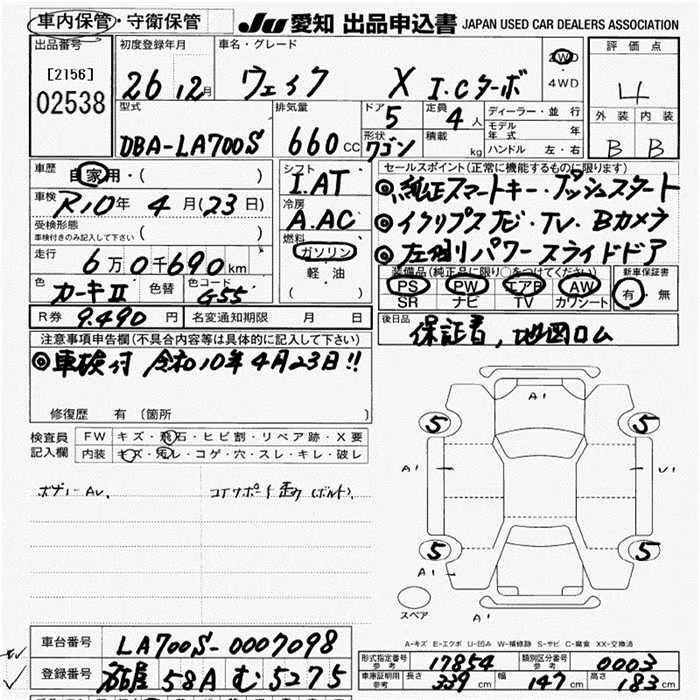 車内保管・守衛保管 JU 愛知 出品申込書 JAPAN USED CAR DEALERS ASSOCIATION
出品番号 [2156] 02538
初度登録年月 26 12月
車名・グレード ウェイク X I.Cターボ
2WD・4WD
評価点 4
外装 内装
B B
型式 DBA-LA700S
排気量 660 CC
ドア 5
定員 4人
形状 ワゴン
積載 kg
ディーラー・並行
モデル年式 年
ハンドル 左・右
車歴 自家用・( )
車検 R10年 4月(23日)
受検形態 車検付きのみ記入して下さい ( )
走行 6万0千690km
色 カーキII 色替 色コード G55
シフト I.AT
冷房 A.AC
燃料 ガソリン
軽油
( )
セールスポイント(正常に機能するものに限ります)
◎純正スマートキー・プッシュスタート
◎イクリプスナビ・TV・Bカメラ
◎左側パワースライドドア
装備品(純正品に限り○をつけてください)
PS PW エアB AW
SR ナビ TV カワシート
新車保証書 有・無
R券 9.490円 名変通知期限 月 日
後日品 保証書,地図ロム
注意事項申告欄(不具合内容等は具体的に記入して下さい)
◎車検付 令和10年4月23日!!
修復歴 有 (箇所 )
検査員記入欄
FW キズ・飛石・ヒビ割・リペア跡・X要
内装 キズ・汚レ・コゲ・穴・スレ・キレ・破レ
ボデーAu.
A1
5 5
A1 U1
5 5
A1
A1
スペア
A-キズ E-エクボ U-凹み W-補修跡 S-サビ C-腐食 XX-交換済
車台番号 LA700S-0007098
登録番号 名古屋 58A む 5275
形式指定番号 参考 17854
類別区分番号 参考 0003
車庫証明用 参考 長さ 339cm 幅 147cm 高さ 183cm